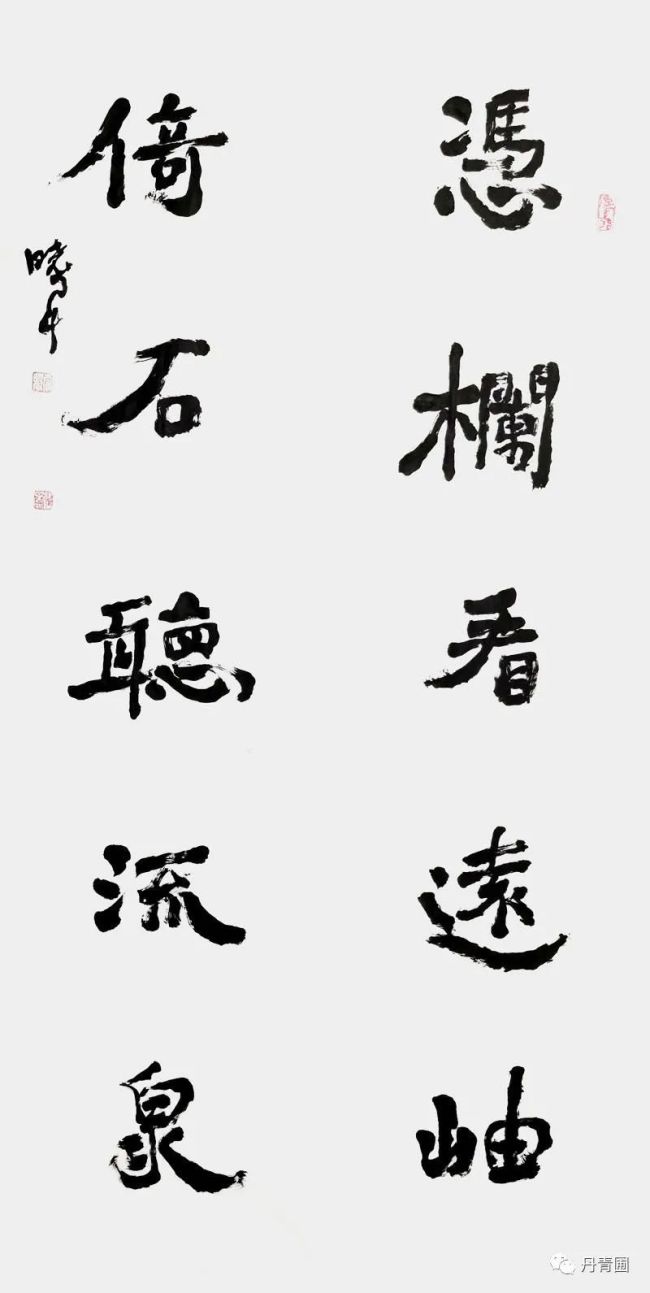 憑欄看遠岫
倚石聽流泉
曉井
丹青圃